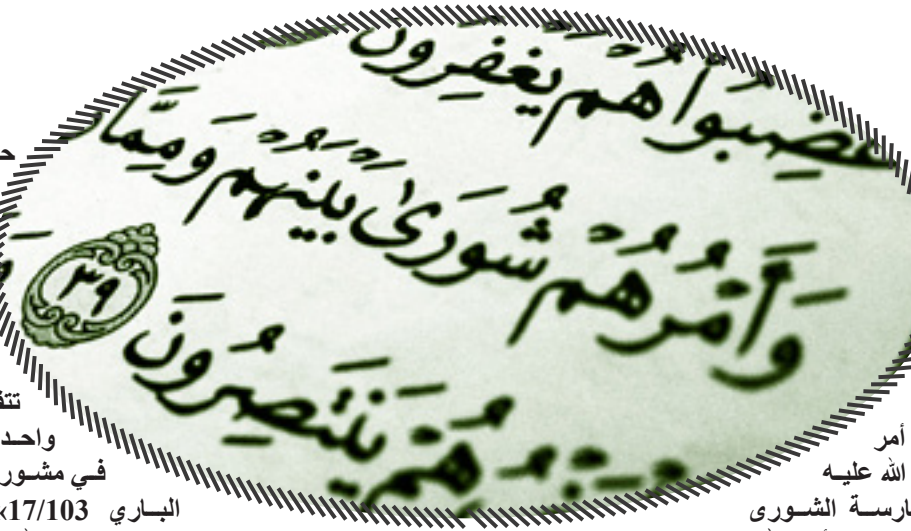 غَضِبُوا هُمْ يَغْفِرُونَ
وَأَمْرُهُمْ شُورَىٰ بَيْنَهُمْ وَمِمَّا
هُمْ يَنتَصِرُونَ ٣٩
أمر
الله عليه
ارسة الشورى
واحد
في مشور
الباري 17/103»